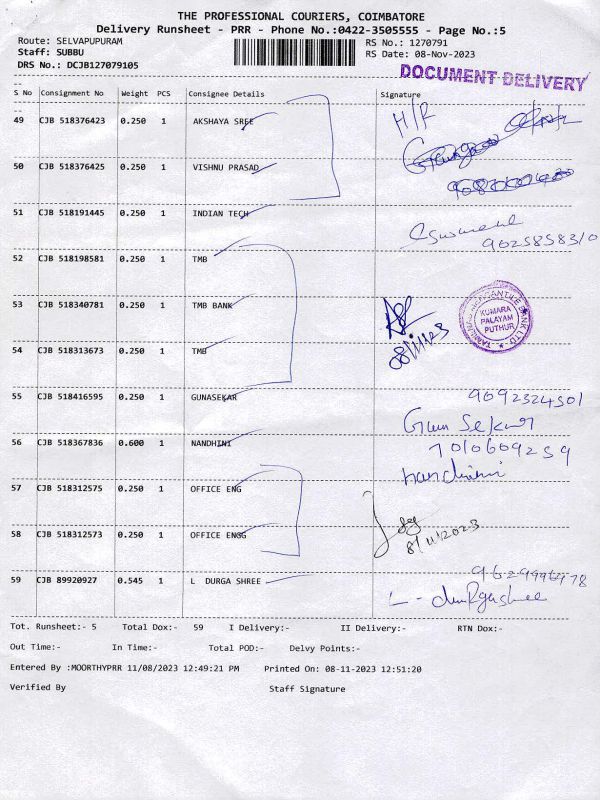 THE PROFESSIONAL COURIERS, COIMBATORE
Delivery Runsheet - PRR - Phone No.:0422-3505555 - Page No.:5
Route: SELVAPUPURAM RS No.: 1270791
Staff: SUBBU RS Date: 08-Nov-2023
DRS No.: DCJB127079105
DOCUMENT DELIVERY
S No Consignment No Weight PCS Consignee Details Signature
49 CJB 518376423 0.250 1 AKSHAYA SREE H/R
50 CJB 518376425 0.250 1 VISHNU PRASAD
51 CJB 518191445 0.250 1 INDIAN TECH
9625858310
52 CJB 518198581 0.250 1 TMB
53 CJB 518340781 0.250 1 TMB BANK
KUMARA PALAYAM PUTHUR
TAMILNAD MERCANTILE BANK LTD.
54 CJB 518313673 0.250 1 TMB 08/11/23
55 CJB 518416595 0.250 1 GUNASEKAR 9092324501
Guna Sekar
56 CJB 518367836 0.600 1 NANDHINI 7010609259
nandhini
57 CJB 518312575 0.250 1 OFFICE ENG
58 CJB 518312573 0.250 1 OFFICE ENGG 8/11/2023
59 CJB 89920927 0.545 1 L DURGA SHREE 9629996978
L - durgashree
Tot. Runsheet:- 5 Total Dox:- 59 I Delivery:- II Delivery:- RTN Dox:-
Out Time:- In Time:- Total POD:- Delvy Points:-
Entered By :MOORTHYPRR 11/08/2023 12:49:21 PM Printed On: 08-11-2023 12:51:20
Verified By Staff Signature